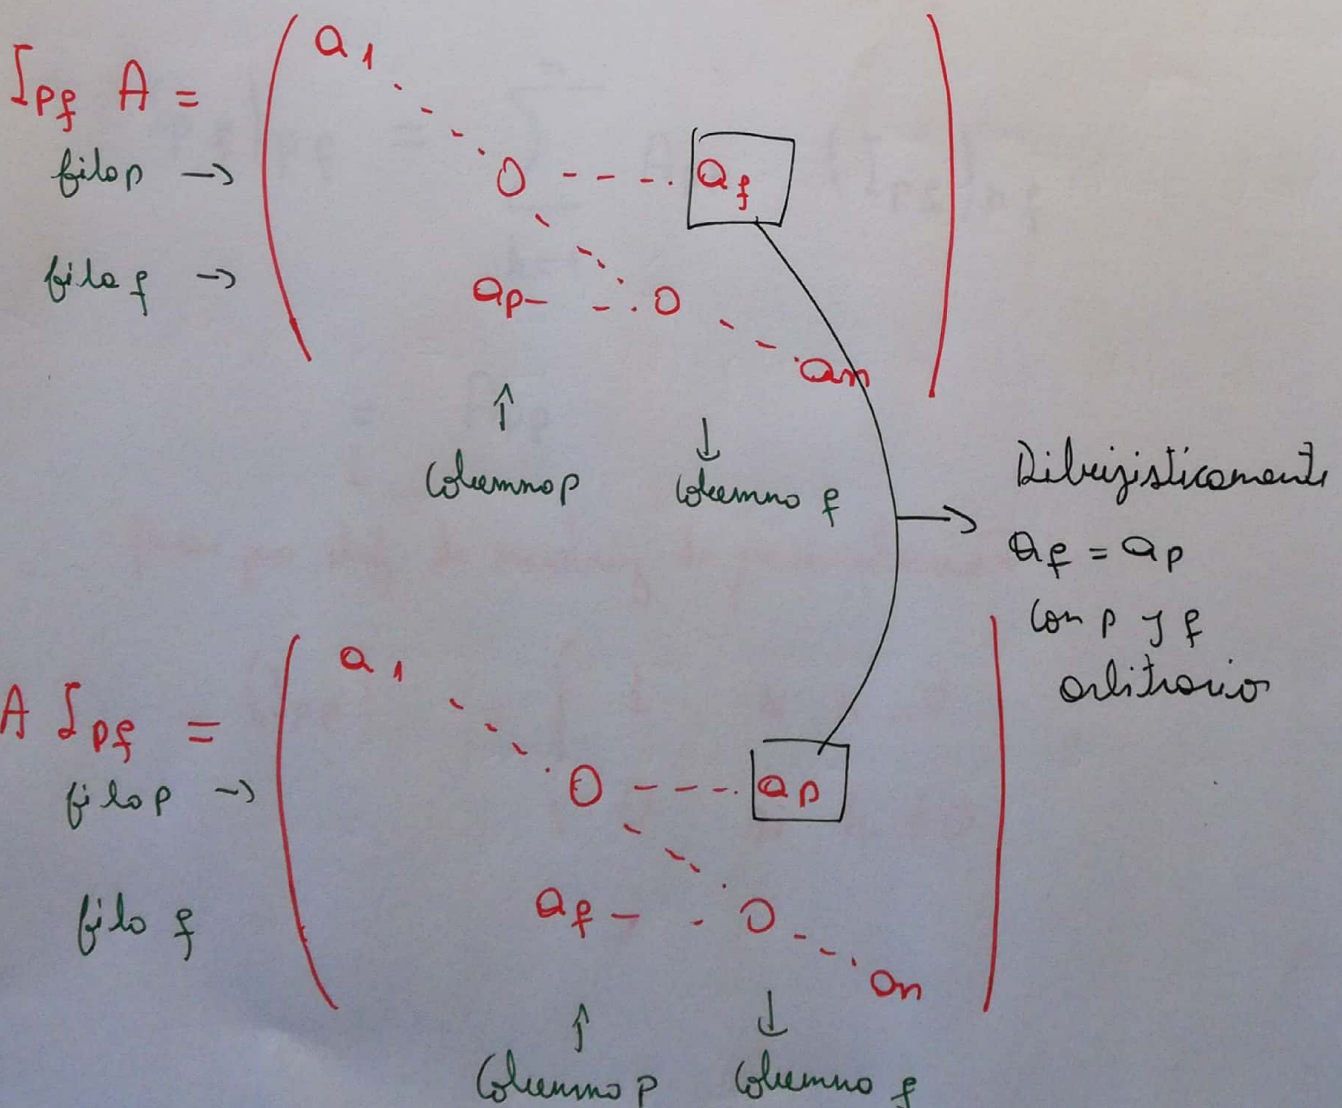 I_{pq} A =
a_1
fila p → 0 - - - a_q
fila q → a_p - - - 0
a_n
↑ ↓
columna p columna q
Dibujisticamente
a_q = a_p
con p y q
arbitrario
A I_{pq} =
a_1
fila p → 0 - - - a_p
fila q a_q - - 0
a_n
↑ ↓
Columna p columna q